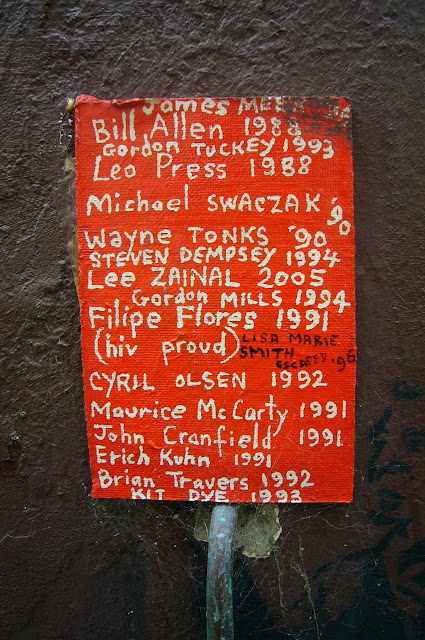 James
Bill Allen 1988
Gordon TUCKEY 1993
Leo Press 1988
Michael SWACZAK '90
Wayne TONKS '90
STEVEN DEMPSEY 1994
Lee ZAINAL 2005
Gordon MILLS 1994
Filipe Flores 1991
(hiv proud) LISA MARIE
SMITH
'96
CYRIL OLSEN 1992
Maurice McCarty 1991
John Cranfield 1991
Erich Kuhn 1991
Brian Travers 1992
KIT DYE 1993